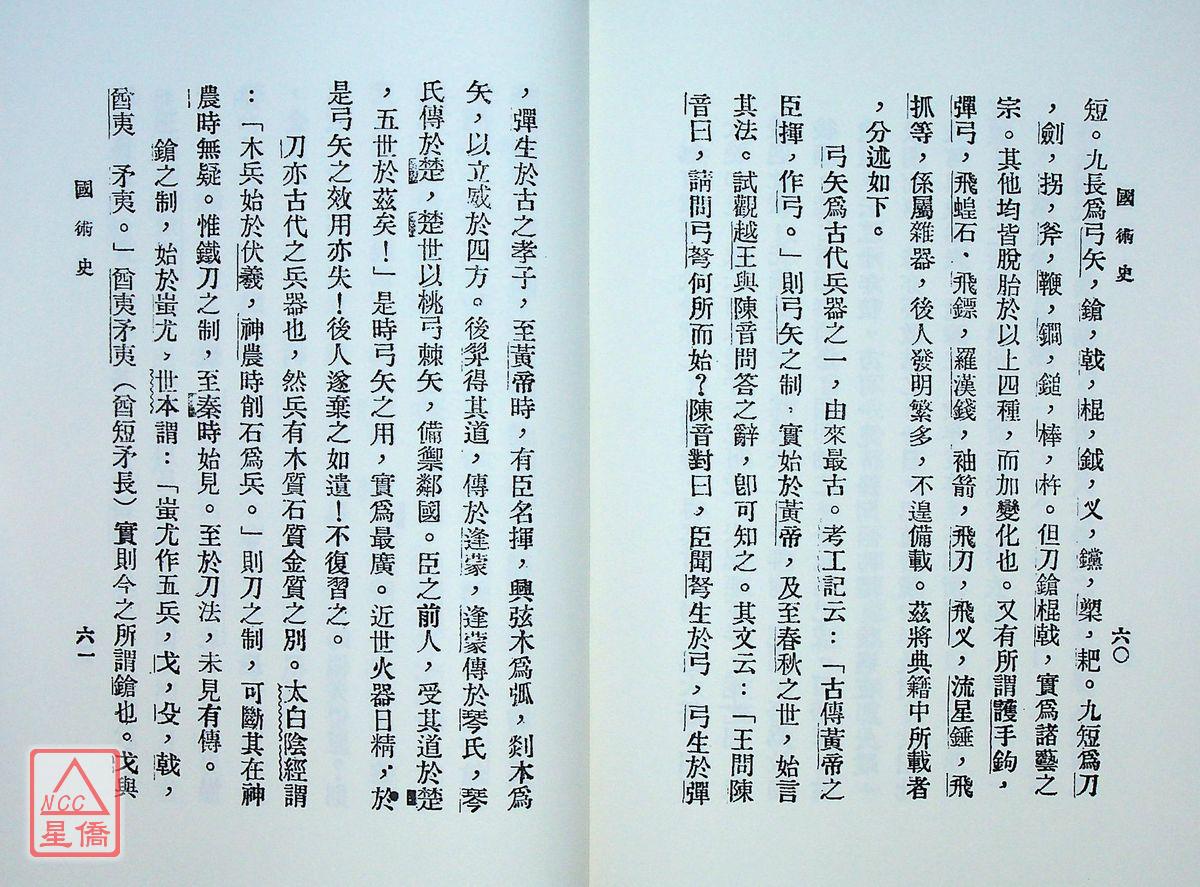 國術史
六〇
短。九長爲弓矢，鎗，戟，棍，鉞，义，钂，槊，耙。九短爲刀
，劍，拐，斧，鞭，鐧，鎚，棒，杵。但刀鎗棍戟，實爲諸藝之
宗。其他均皆脫胎於以上四種，而加變化也。又有所謂護手鉤，
彈弓，飛蝗石、飛鏢，羅漢錢，袖箭，飛刀，飛义，流星錘，飛
抓等，係屬雜器，後人發明繁多，不遑備載。茲將典籍中所載者
，分述如下。
弓矢爲古代兵器之一，由來最古。考工記云：「古傳黃帝之
臣揮，作弓。」則弓矢之制，實始於黃帝，及至春秋之世，始言
其法。試觀越王與陳音問答之辭，卽可知之。其文云：「王問陳
音曰，請問弓弩何所而始？陳音對曰，臣聞弩生於弓，弓生於彈
，彈生於古之孝子，至黃帝時，有臣名揮，興弦木爲弧，剡木爲
矢，以立威於四方。後羿得其道，傳於逢蒙，逢蒙傳於琴氏，琴
氏傳於楚，楚世以桃弓棘矢，備禦鄰國。臣之前人，受其道於楚
，五世於茲矣！」是時弓矢之用，實爲最廣。近世火器日精，於
是弓矢之效用亦失！後人遂棄之如遺！不復習之。
刀亦古代之兵器也，然兵有木質石質金質之別。太白陰經謂
：「木兵始於伏羲，神農時削石爲兵。」則刀之制，可斷其在神
農時無疑。惟鐵刀之制，至秦時始見。至於刀法，未見有傳。
鎗之制，始於蚩尤，世本謂：「蚩尤作五兵，戈，殳，戟，
酋夷　矛夷。」酋夷矛夷（酋短矛長）實則今之所謂鎗也。戈與
國術史
六一
NCC
星僑